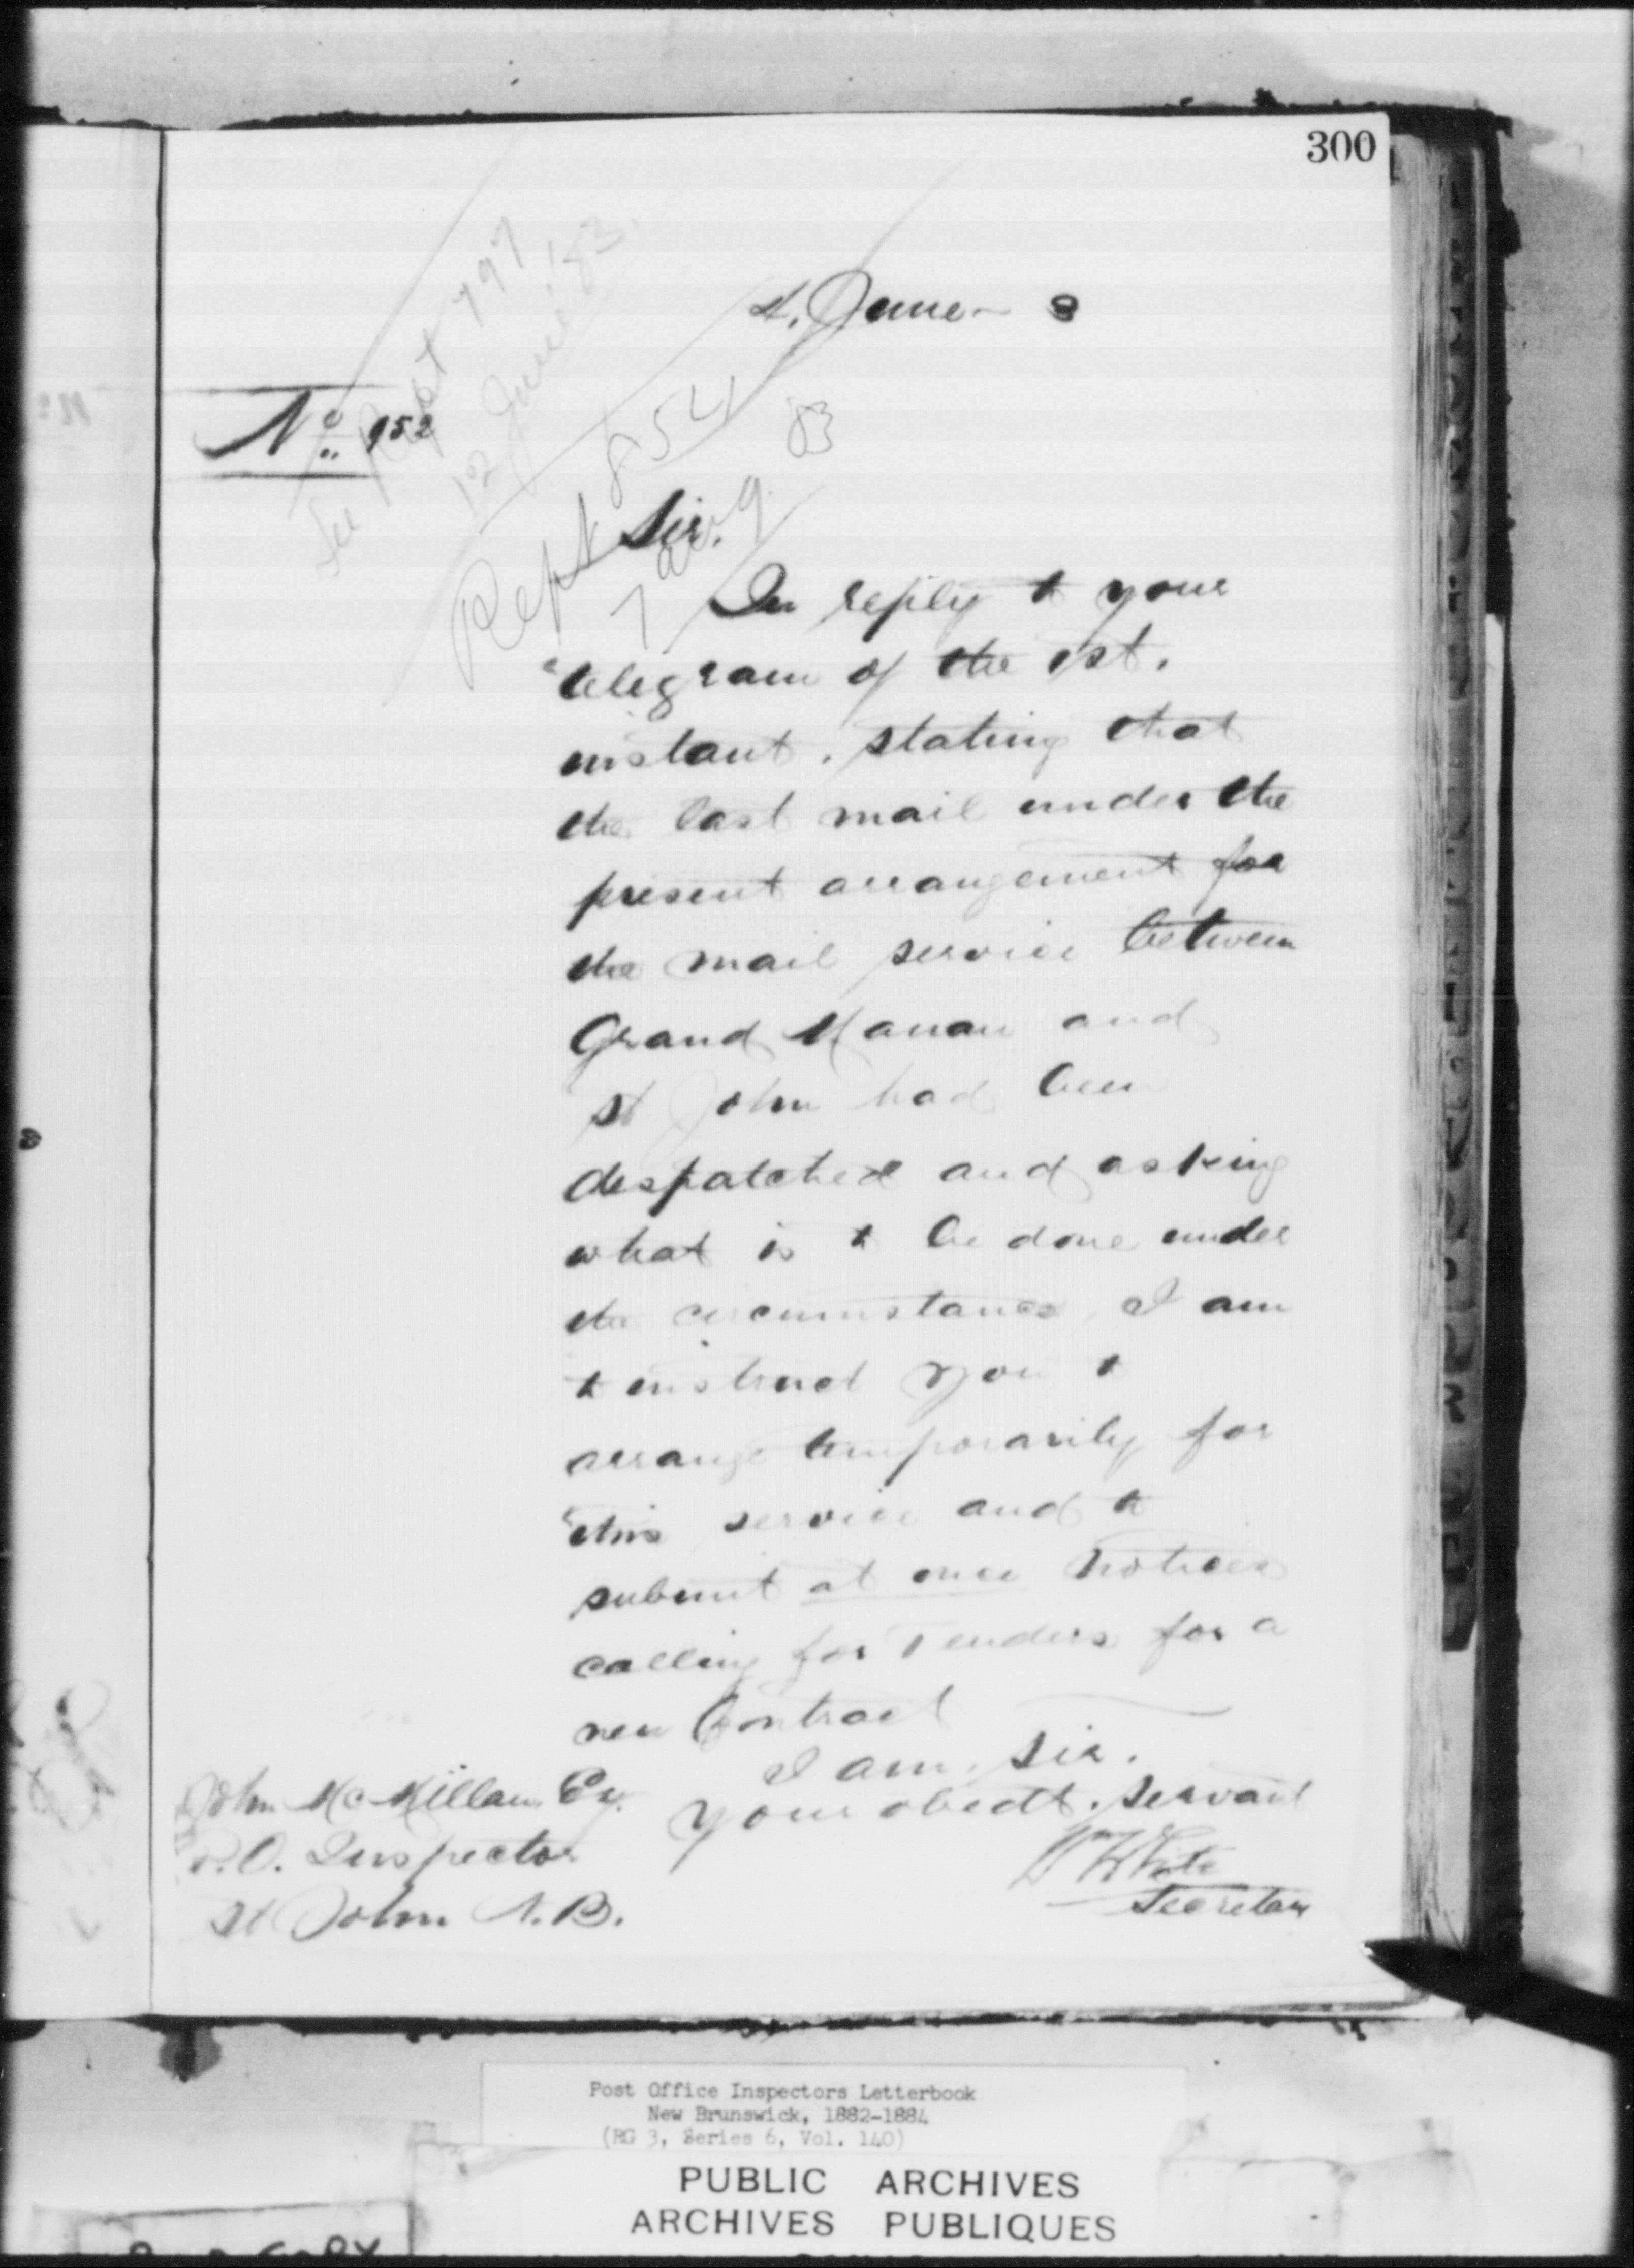 300
See Rept 797
12 June '83.
4. June 3
No 952
Rept 854
7 Aug. 83
Sir.
In reply to your
telegram of the 1st.
instant, stating that
the last mail under the
present arrangement for
the mail service between
Grand Manan and
St John had been
despatched and asking
what is to be done under
the circumstances, I am
to instruct you to
arrange temporarily for
this service and to
submit at once Notices
calling for Tenders for a
new Contract
I am, Sir.
Your obedt. Servant
Wm White
Secretary
John McMillan Esq.
P.O. Inspector
St John N.B.
Post Office Inspectors Letterbook
New Brunswick, 1882-1884
(RG 3, Series 6, Vol. 140)
PUBLIC ARCHIVES
ARCHIVES PUBLIQUES
COPY